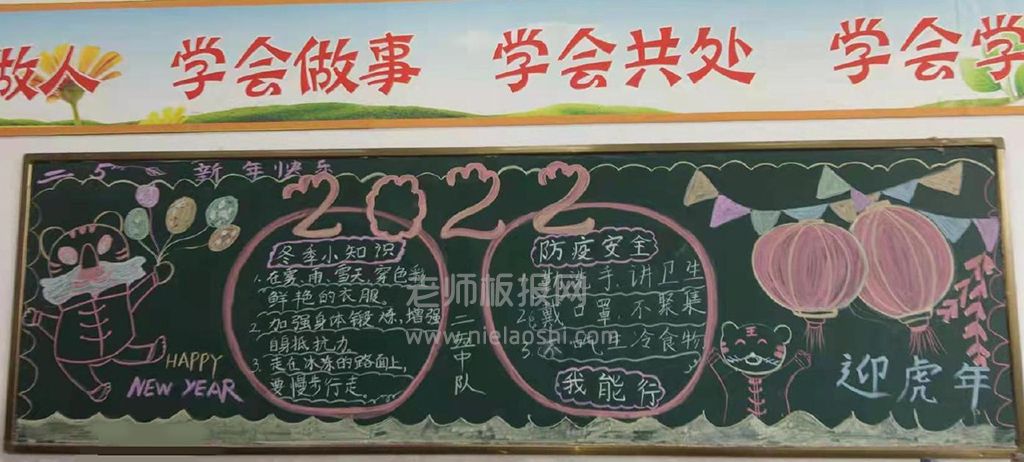 做人 学会做事 学会共处 学会学
二 5 新年快乐
2022
冬季小知识
1.在雾、雨、雪天、穿色彩
鲜艳的衣服。
2.加强身体锻炼,增强
自身抵抗力
3.走在冰冻的路面上,
要慢步行走
HAPPY
NEW YEAR
二五中队
防疫安全
手,讲卫生
2.戴口罩,不聚集
3.不 生冷食物
我能行
迎虎年
王
老师板报网
www.nielaoshi.com